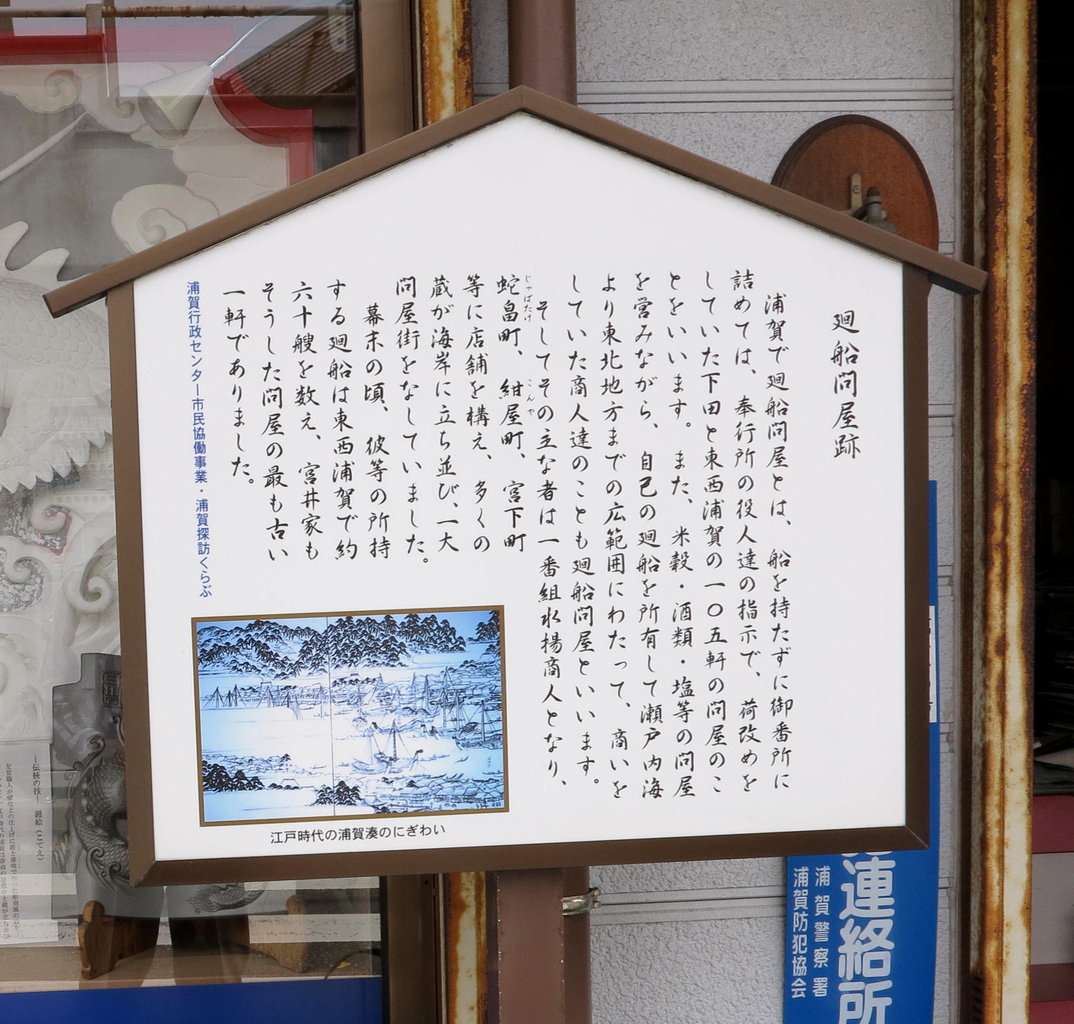 廻船問屋跡
浦賀で廻船問屋とは、船を持たずに御番所に
詰めては、奉行所の役人達の指示で、荷改めを
していた下田と東西浦賀の一〇五軒の問屋のこ
とをいいます。また、米穀・酒類・塩等の問屋
を営みながら、自己の廻船を所有して瀬戸内海
より東北地方までの広範囲にわたって、商いを
していた商人達のことも廻船問屋といいます。
そしてその主な者は一番組水揚商人となり、
蛇畠町、紺屋町、宮下町
じゃばたけ
こんや
等に店舗を構え、多くの
蔵が海岸に立ち並び、一大
問屋街をなしていました。
幕末の頃、彼等の所持
する廻船は東西浦賀で約
六十艘を数え、宮井家も
そうした問屋の最も古い
一軒でありました。
浦賀行政センター市民協働事業・浦賀探訪くらぶ
江戸時代の浦賀湊のにぎわい
連絡所
浦賀警察署
浦賀防犯協会
―伝統の技― 鏝絵(こてえ)